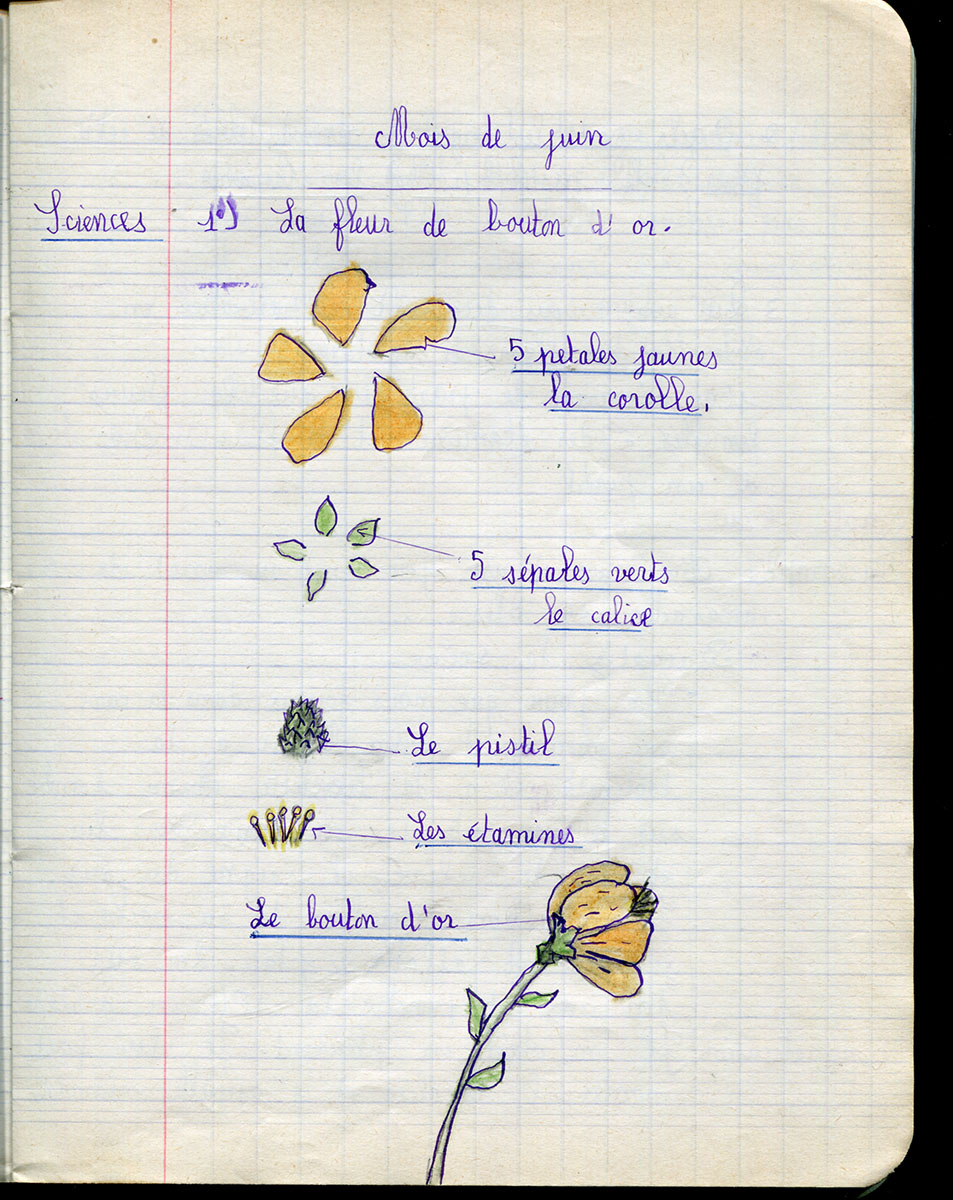 Mois de juin
Sciences 1°) La fleur de bouton d'or.
5 petales jaunes
la corolle.
5 sépales verts
le calice
Le pistil
Les étamines
Le bouton d'or